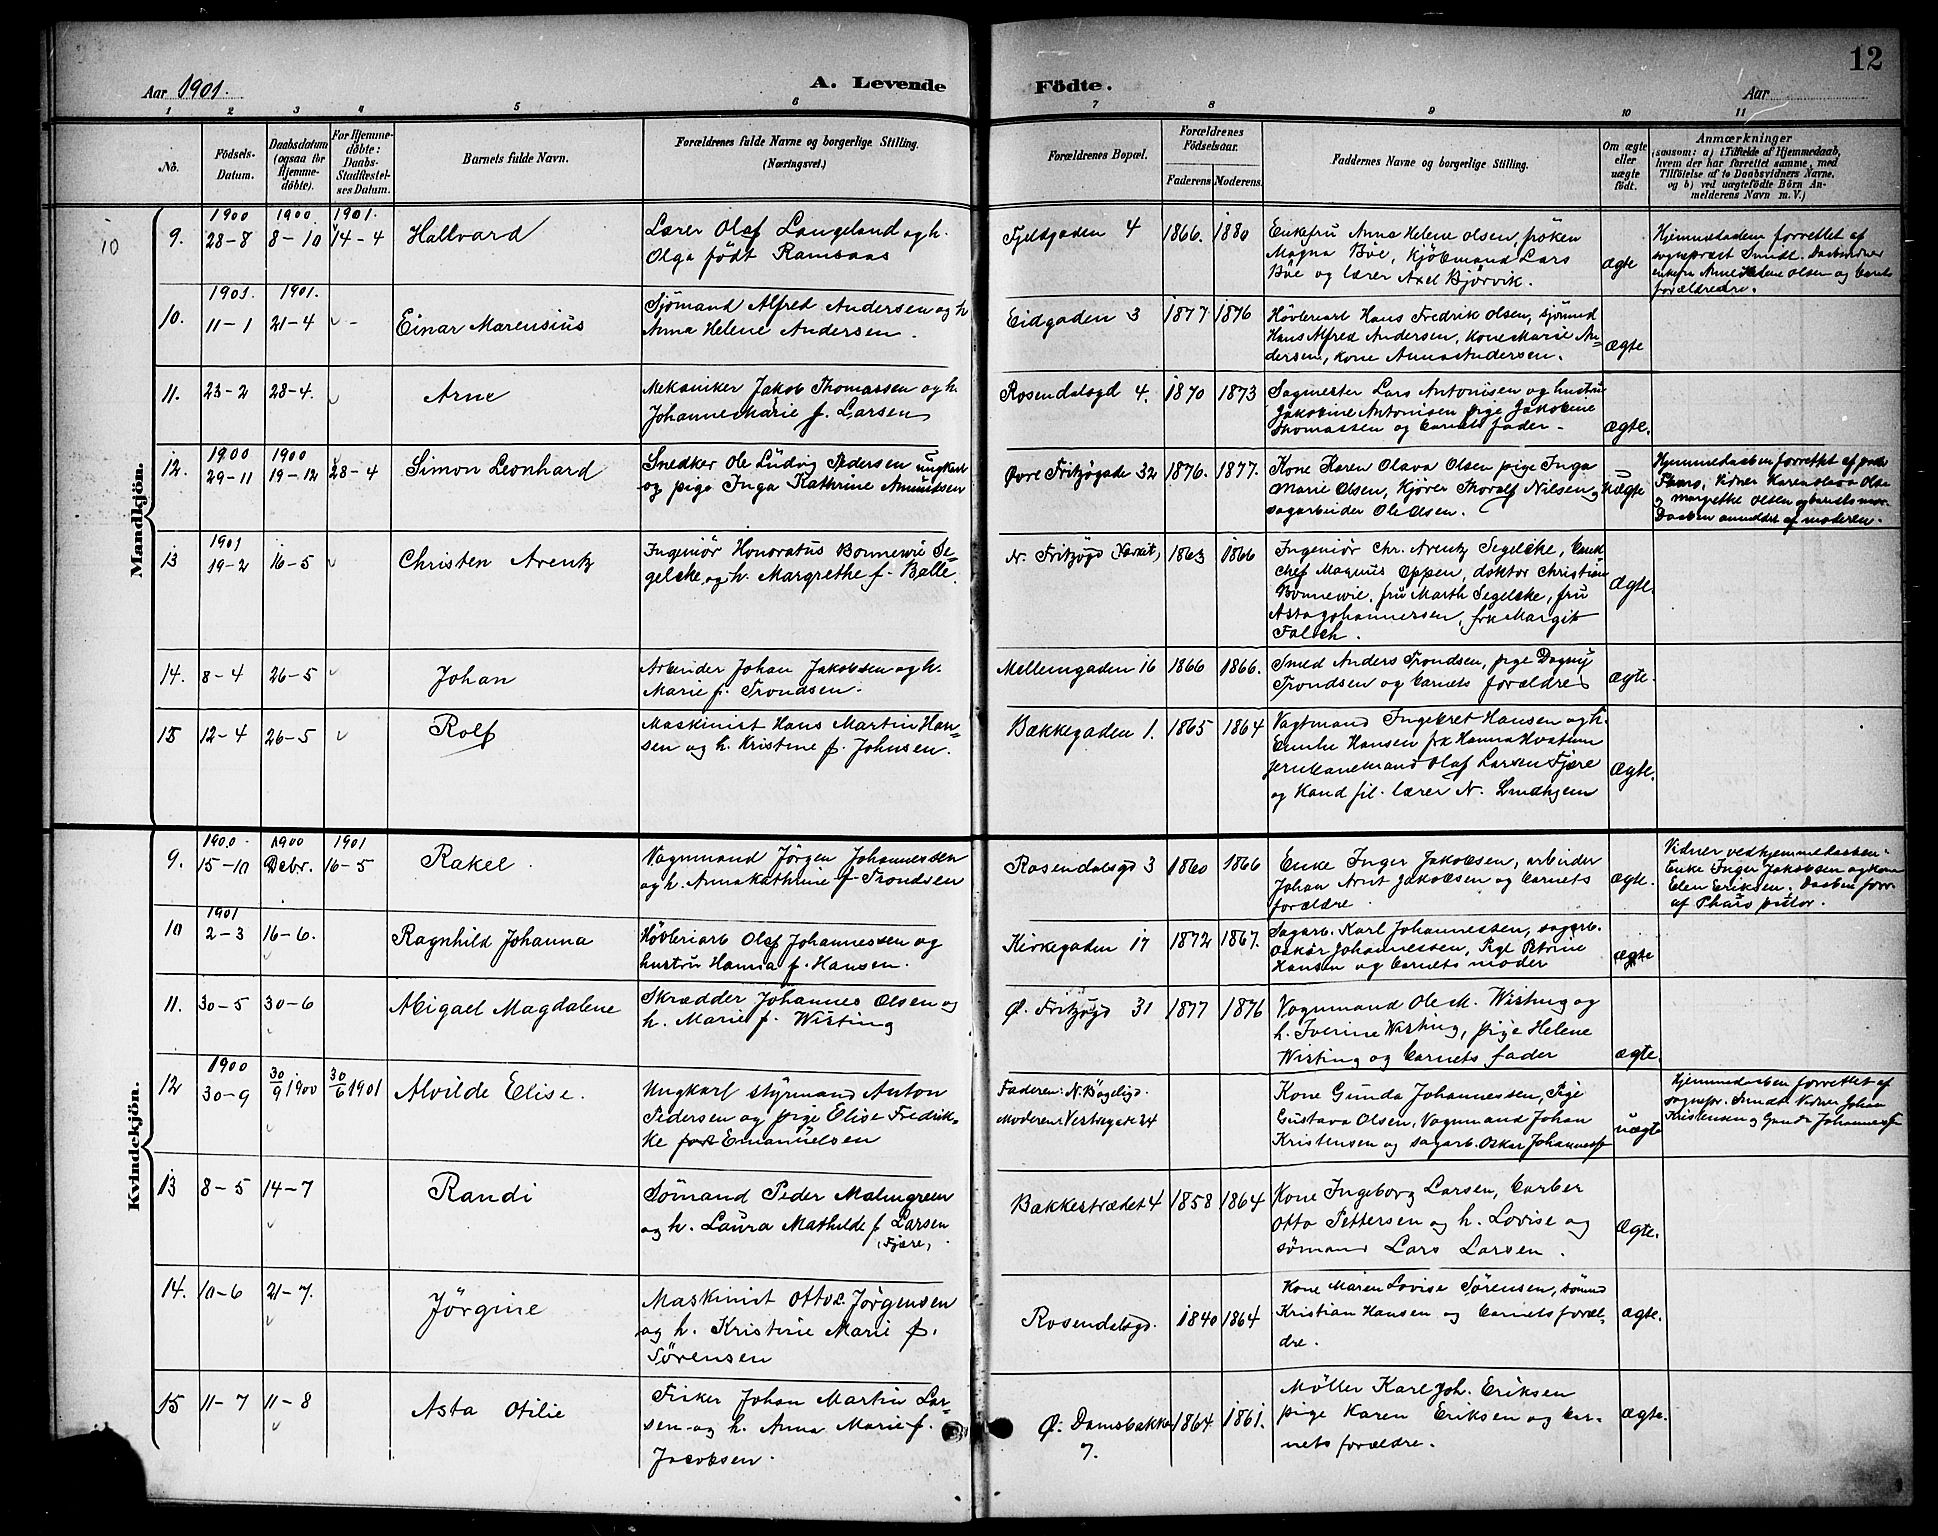 12
Aar 1901.
A. Levende
Födte.
Aar
1 2 3 4 5 6 7 8 9 10 11
No.
Födsels-Datum.
Daabsdatum (ogsaa for Hjemme-döbte).
For Hjemme-döbte: Daabs-Stadfæstel-ses Datum.
Barnets fulde Navn.
Forældrenes fulde Navne og borgerlige Stilling. (Næringsvei.)
Forældrenes Bopæl.
Forældrenes Födselsaar.
Faderens
Moderens
Faddernes Navne og borgerlige Stilling.
Om ægte eller uægte födt.
Anmærkninger
(saasom: a) i Tilfælde af Hjemmedaab, hvem der har forrettet samme, med Tilföielse af to Daabsvidners Navne, og b) ved uægtefödte Börn An-melderens Navn m. V.)
10
Mandkjön.
9. 1900 28-8 1900 8-10 1901. 14-4 Hallvard
Lærer Olaf Langeland og h.
Olga födt Ramsaas
Fjeldgaden 4 1866. 1880
Enkefru Anna Helene Olsen, fröken
Magna Böe, Kjöbmand Lars
Böe og lærer Axel Björvik.
ægte
Hjemmedaaben forrettet af
sogneprest Smidt. Daabsvidner
enkefru Anna Helene Olsen og barnets
forældredre.
10. 1901. 11-1 1901. 21-4 Einar Marensius
Sjömand Alfred Andersen og h
Anna Helene Andersen.
Eidgaden 3 1877 1876
Hövleriarb Hans Fredrik Olsen, sjömnd
Hans Alfred Andersen, Kone Marie An-
dersen, Kone Anna Andersen.
ægte
11. 23-2 28-4. Arne
Mekaniker Jakob Thomassen og h.
Johanne Marie f. Larsen
Rosendalsgd 4. 1870 1873
Sagmester Lars Antonisen og hustru
Jakobine Antonisen pige Jakobine
Thomassen og barnets fader.
ægte.
12. 1900 29-11 1900 19-12 28-4 Simon Leonhard
Snedker Ole Ludvig Pedersen ungkarl
og pige Inga Kathrine Amundsen
Övre Fritzögade 32 1876. 1877.
Kone Karen Olava Olsen pige Inga
Marie Olsen, Kjörer Thoralf Nilsen og
sagarbeider Ole Olsen.
uægte
Hjemmedaaben forrettet af
Vidner Karen Olava Olsen
og Margrethe Olsen og barnets mor.
Daaben anmeldet af moderen.
13 1901 19-2 16-5 Christen Arentz
Ingeniör Honoratus Bonnevie Se-
gelcke og h. Margrethe f. Balle.
N. Fritzögd 1863 1866
Ingeniör Chr. Arentz Segelcke, bank
chef Magnus Oppen, doktor Christian
Bonnevie, fru Marth Segelcke, fru
Asta Johannersen, frk Margit
Falch.
Ægte.
14. 8-4 26-5 Johan
Arbeider Johan Jakobsen og h.
Marie f. Trondsen.
Mellemgaden 16 1866 1866.
Smed Anders Trondsen, pige Dagny
Trondsen og barnets forældre
ægte.
15 12-4 26-5 Rolf
Maskinist Hans Martin Han-
sen og h. Kristine f. Johnsen.
Bækkegaden 1. 1865 1864
Vagtmand Ingebret Hansen og h.
Emilie Hansen frk Hanna Hvatum
jernbanemand Olaf Larsen Fjære
og Kand fil. lærer N.
ægte.
Kvindekjön.
9. 1900. 15-10 1900 Debr. 1901 16-5 Rakel
Vognmand Jörgen Johannessen
og h. Anna Kathrine f. Trondsen
Rosendalsgd 3 1860 1866
Enke Inger Jakobsen, arbeider
Johan Arnt Jakobsen og barnets
forældre
ægte.
Vidner ved hjemmedaaben:
Enke Inger Jakobsen og kone
Elen Eriksen. Daaben forr.
af
10 1901 2-3 16-6. Ragnhild Johanna
Hövleriarb Olaf Johannessen og
hustru Hanna f. Hansen.
Kirkegaden 17 1872 1867.
Sagarb. Karl Johannessen, sagarb.
Oskar Johannessen, Pige Petrine
Hansen og barnets moder
ægte
11. 30-5 30-6 Abigael Magdalene
Skrædder Johannes Olsen og
h. Marie f. Wisting
Ø. Fritzögd 31 1877 1876
Vognmand Ole M. Wisting og
h. Iverine Wisting, pige Helene
Wisting og barnets fader
ægte.
12 1900 30-9 30/9 1900 30/6 1901 Alvilde Elise.
Ungkarl styrmand Anton
Pedersen og pige Elise Fredrik-
ke födt Emanuelsen
Faderen: N. Bögeligd.
Moderen: Vestregade 24
Kone Gunda Johannessen, Pige
Gustava Olsen, Vognmand Johan
Kristensen og sagarb. Oskar Johannessen
uægte
Hjemmedaaben forrettet af
sognepr. Smidt Vidner Johan
Kristensen og Gunda Johannessen
13 8-5 14-7 Randi
Sömand Peder Malmgreen
og h. Laura Mathilde f Larsen
(Fjære)
Bakkestrædet 4 1858 1864
Kone Ingeborg Larsen, barber
Otto Pettersen og h. Lovise og
sömand Lars Larsen.
Ægte.
14. 10-6 21-7. Jörgine
Maskinist Otto L. Jörgensen
og h. Kristine Marie f.
Sörensen
Rosendalsgd. 1840 1864
Kone Maren Lovise Sörensen, sömnd
Kristian Hansen og barnets foræl-
dre.
ægte.
15 11-7 11-8 Asta Otilie
Fisker Johan Martin Lar-
sen og h. Anna Marie f.
Jacobsen.
Ø. Damsbakke 7. 1864 1861.
Möller Karl Joh. Eriksen
pige Karen Eriksen og bar-
nets forældre.
ægte.